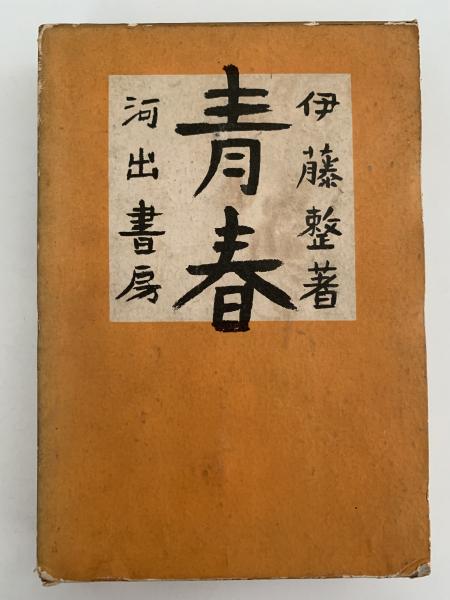 伊藤整著
青春
河出書房